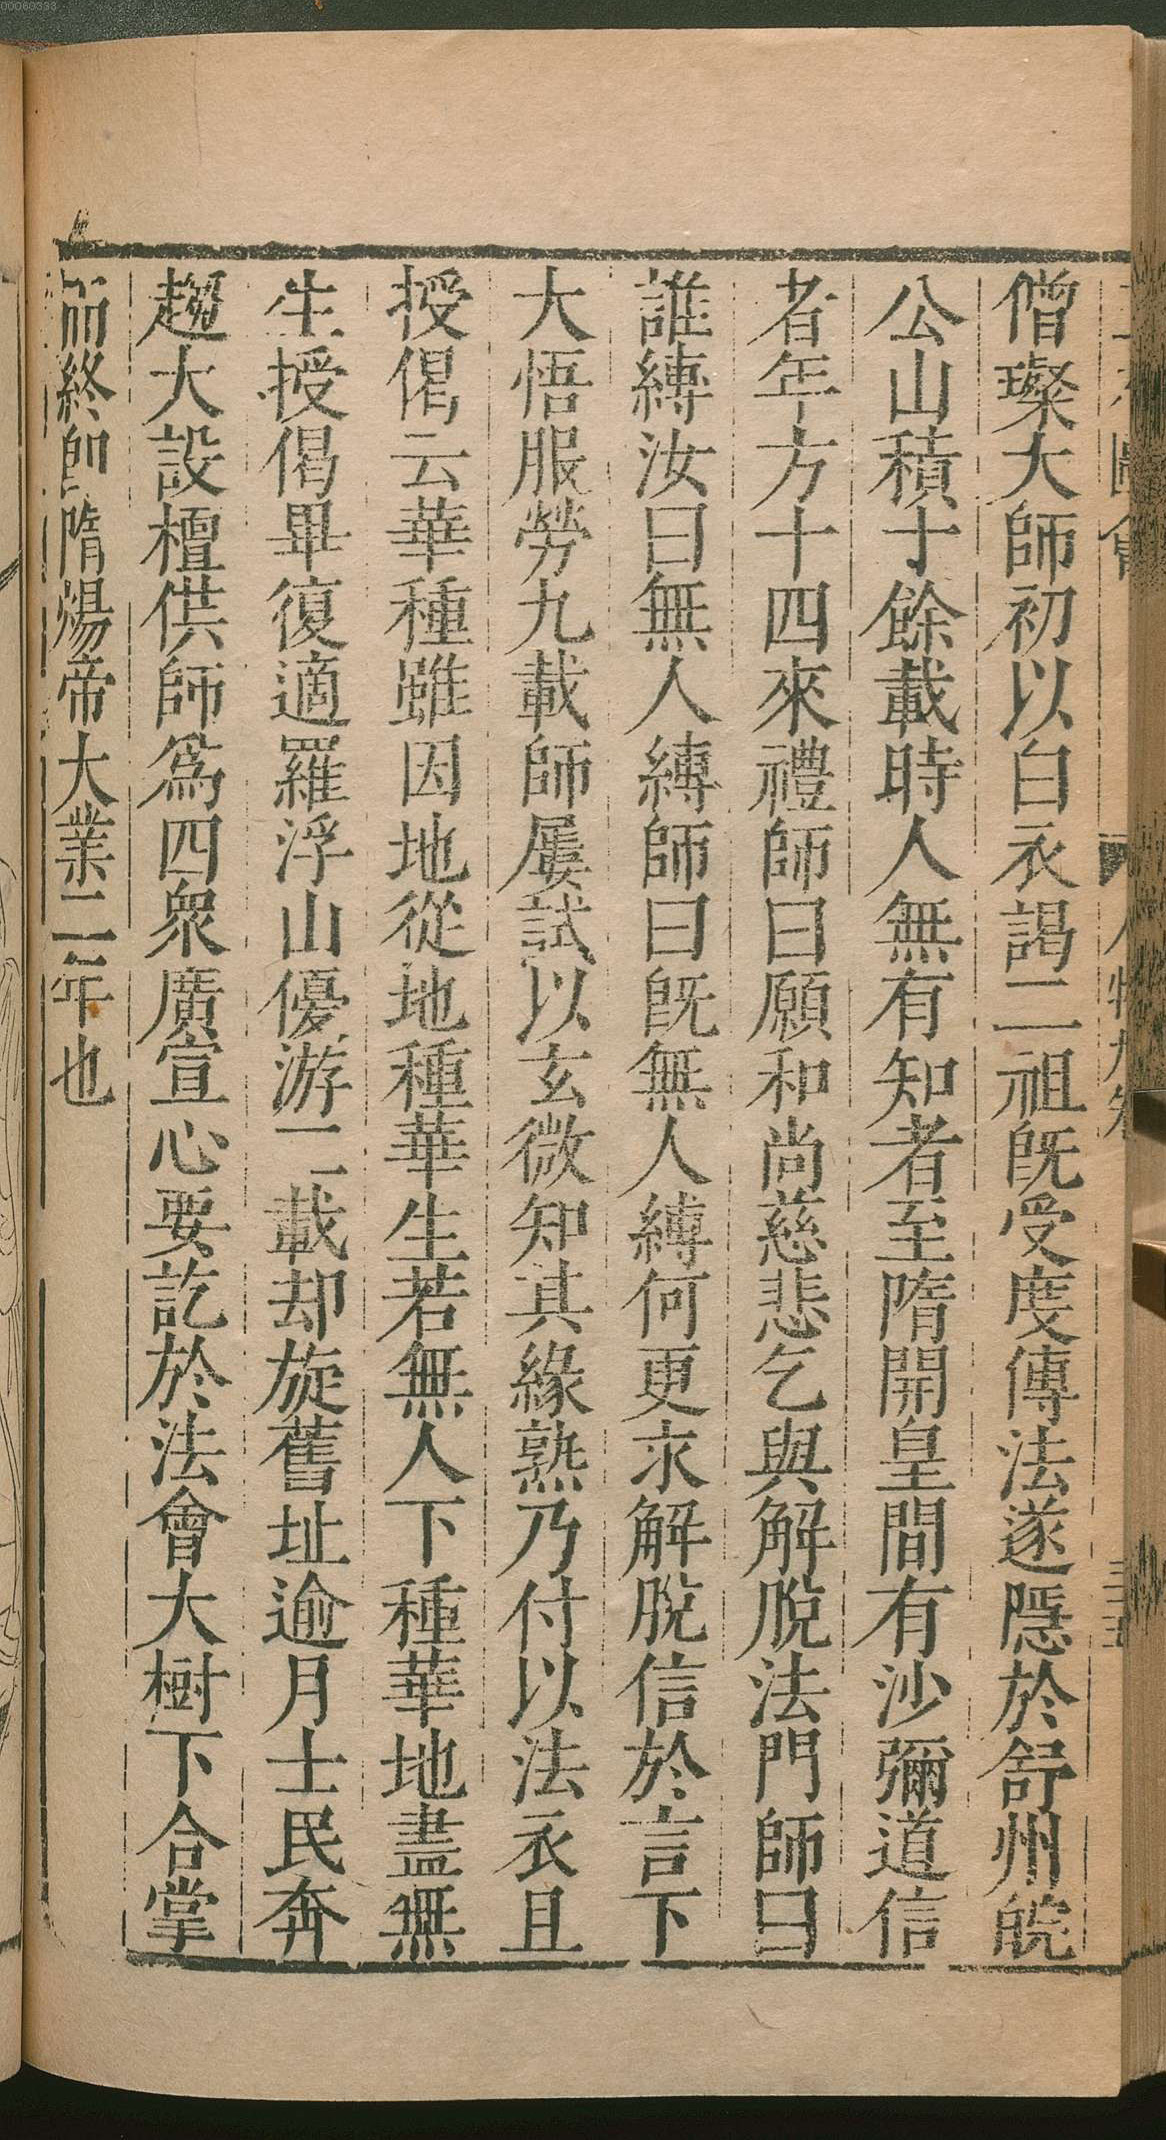 僧璨大師初以白衣謁二祖旣受度傳法遂隱於舒州皖
公山積十餘載時人無有知者至隋開皇間有沙彌道信
者年方十四來禮師曰願和尚慈悲乞與解脫法門師曰
誰縛汝曰無人縛師曰旣無人縛何更求解脫信於言下
大悟服勞九載師屢試以玄微知其緣熟乃付以法衣且
授偈云華種雖因地從地種華生若無人下種華地盡無
生授偈畢復適羅浮山優游二載却旋舊址逾月士民奔
趨大設檀供師爲四衆廣宣心要訖於法會大樹下合掌
而終卽隋煬帝大業二年也
00060333